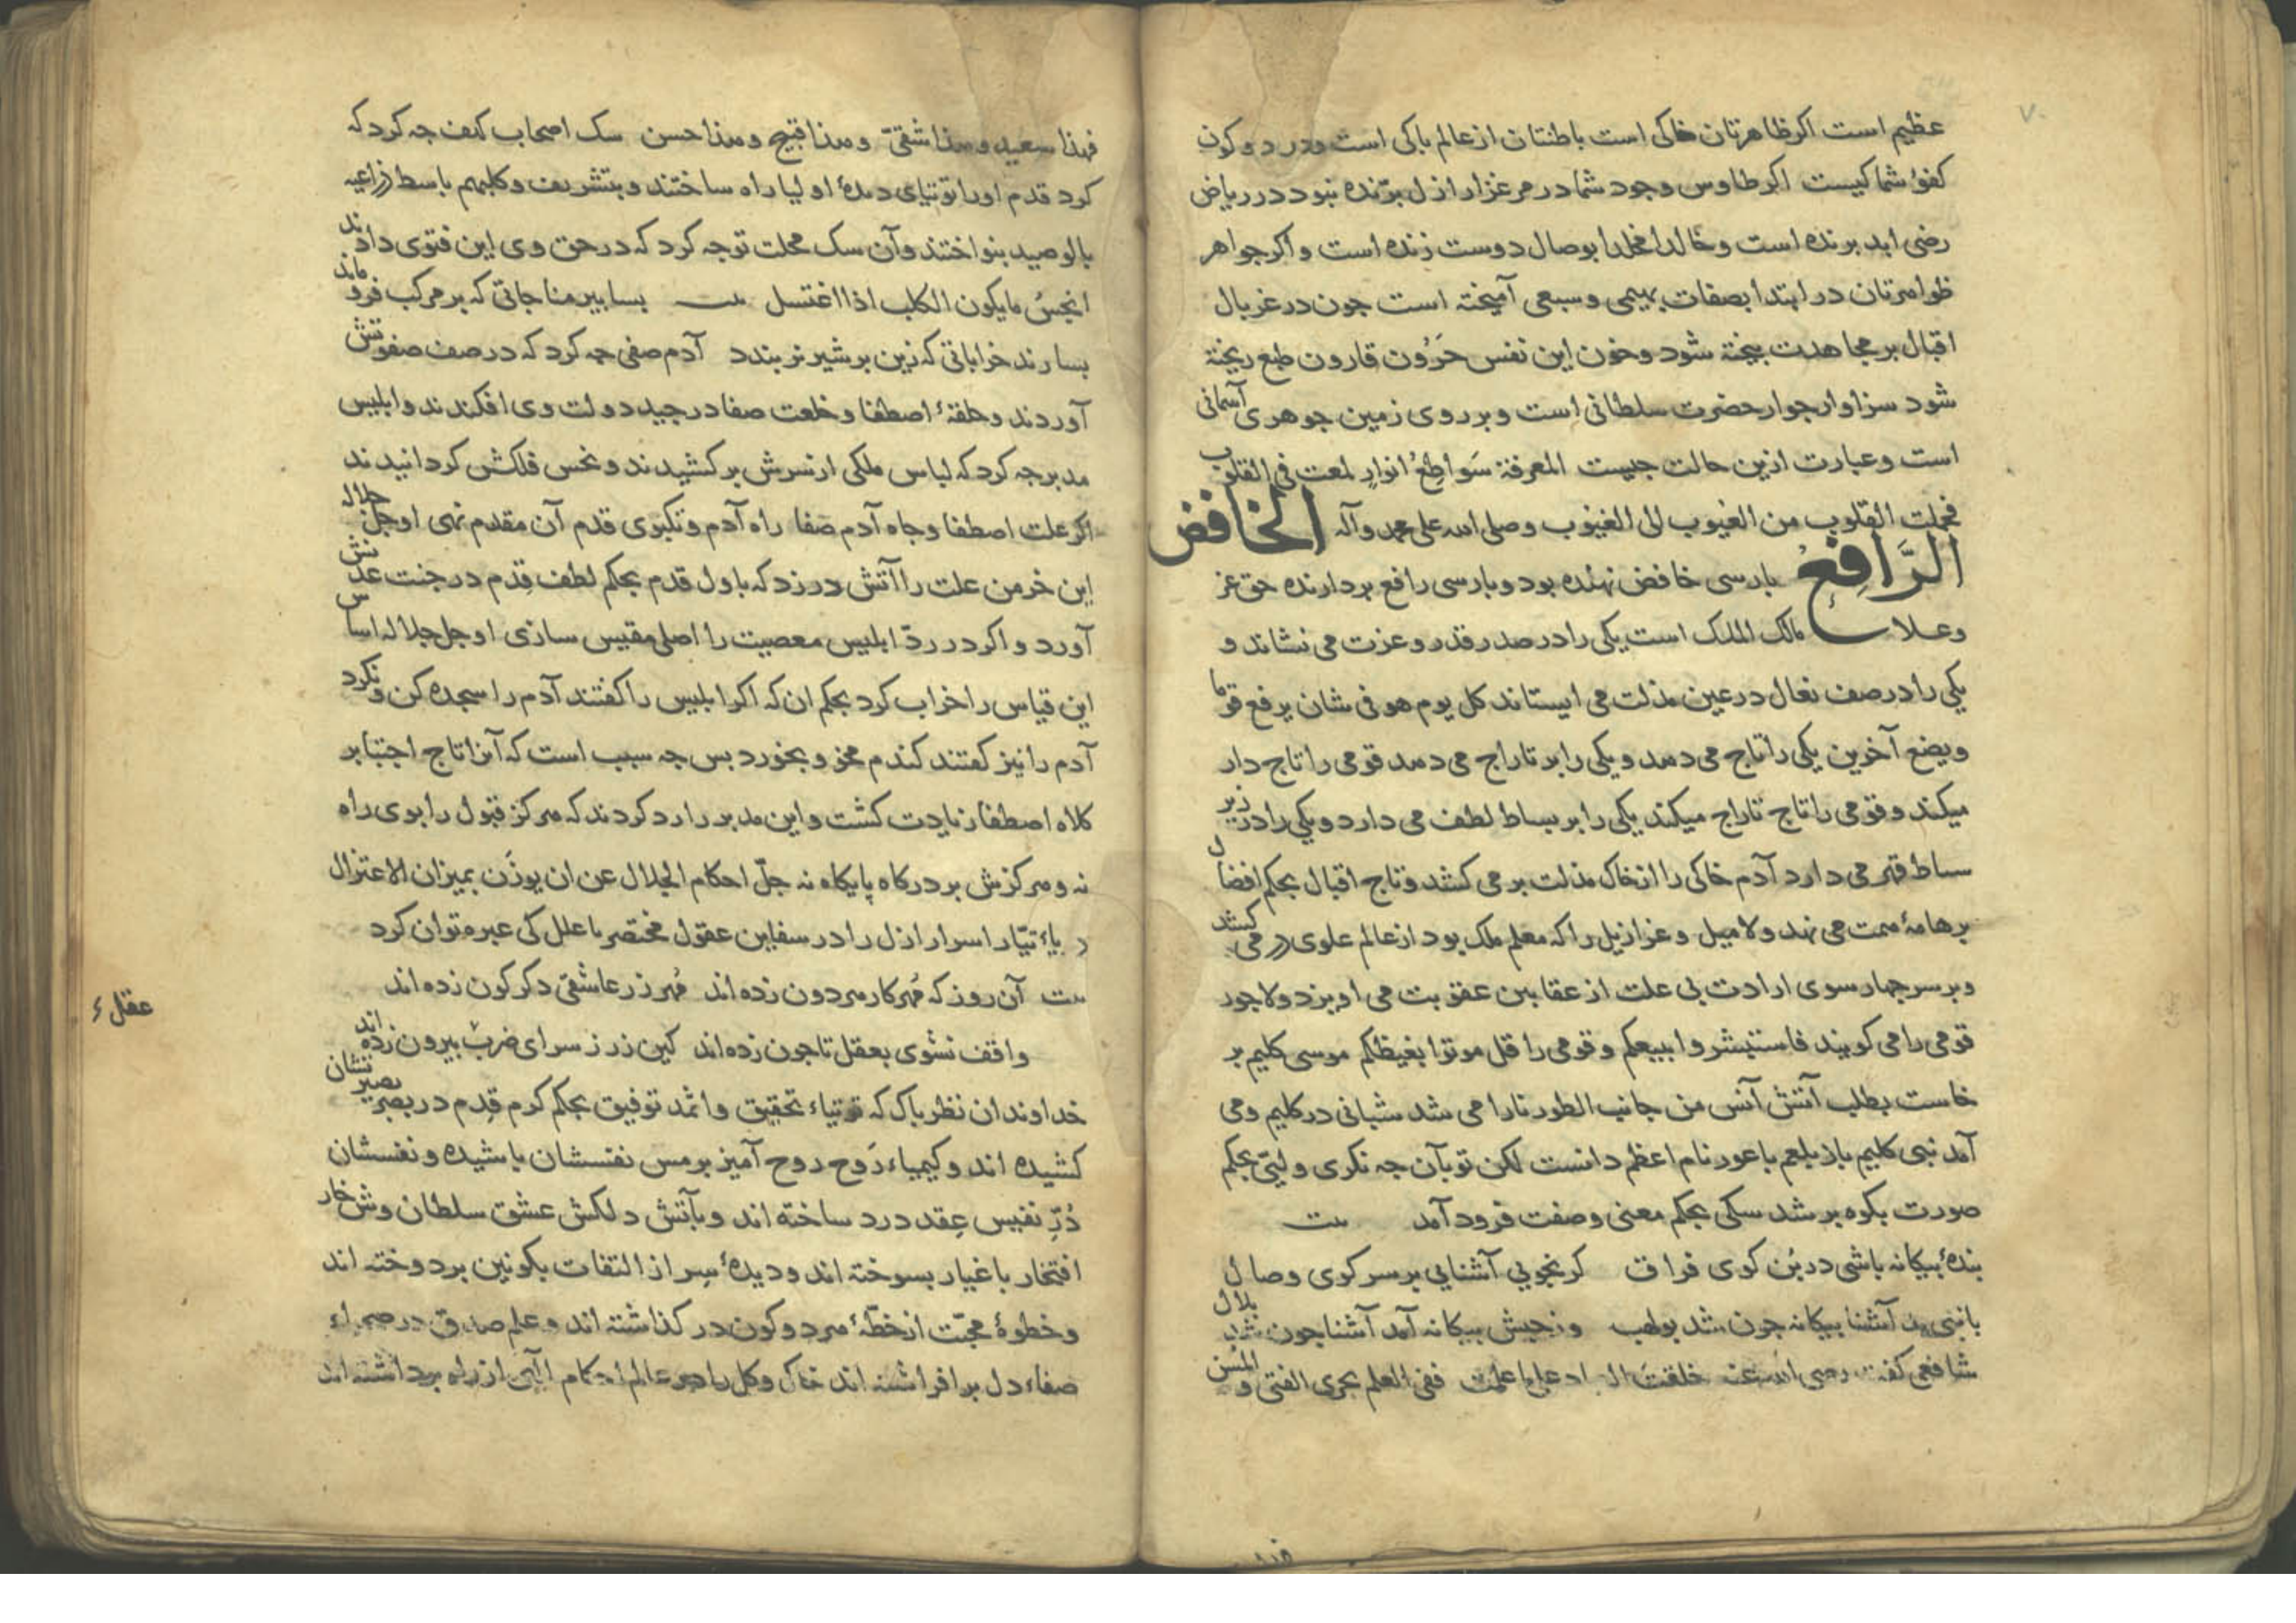 عظیم است اکر ظاهرتان خاکی است باطنتان از عالم باکی است ودر دو کون
کفؤ شما کیست اکر طاوس وجود شما در مرغزار ازل برّنده نبود در ریاض
رضی ابد برنده است و خالدا مخلدا بوصال دوست زنده است و اکر جواهر
ظواهرتان در ابتدا بصفات بهیمی و سبعی آمیخته است جون در غربال
اقبال بر مجاهدت بیخته شود وخون این نفس حَرُون قارون طبع ریخته
شود سزاوار جوار حضرت سلطانی است و بر روی زمین جوهری آسمانی
است و عبارت ازین حالت جیست المعرفة سَواطِعُ انوارٍ لمعت فی القلوب
فحملت القلوب من الغیوب الی الغیوب وصلی الله علی محمد وآله الخافض
الرَّافِعُ بارسی خافض نهنده بود وبارسی رافع بردارنده حق عز
وعلا مالک الملک است یکی را در صدر قدر و عزت می نشاند و
یکی را در صف نعال در عین مذلت می ایستاند کل یوم هو فی شان یرفع قوما
ویضع آخرین یکی را تاج می دهد و یکی را بر تاراج می دهد قومی را تاج دار
میکند و قومی را تاج تاراج میکند یکی را بر بساط لطف می دارد و یکی را در زیر
سساط قهر می دارد آدم خاکی را از خاک مذلت بر می کشد و تاج اقبال بحکم افضال
برهامۀ همت می نهد ولا میل و عزازیل را که معلم ملک بود از عالم علوی در می کشد
و بر سر جهار سوی ارادت بی علت از عقابین عقوبت می اویزد ولا جور
قومی را می کویند فاستبشروا ببیعکم و قومی را قل موتوا بغیظکم موسی کلیم بر
خاست بطلب آتش آنس من جانب الطور نارا می شد شبانی در کلیم ومی
آمد نبی کلیم باز بلعم باعور نام اعظم دانست لکن تو بآن جه نکری ولیّی بحکم
صورت بکوه بر شد سکی بحکم معنی و صفت فرود آمد بیت
بندۀ بیکانه باشی در بُن کوی فراق کر نجویی آشنایی بر سر کوی وصال
با نبی آشنا بیکانه جون شد بولهب وز حبش بیکانه آمد آشنا جون شد بلال
شافعی کفت رضی الله عنه خلقت علی ما علمت ففی العلم یجری الفتی و المُسن
فهذا سعید وهذا شقیّ وهذا قبیح وهذا حسن سک اصحاب کهف جه کرد که
کرد قدم او را توتیای دیدۀ اولیا راه ساختند و بتشریف وکلبهم باسط ذراعیه
بالوصید بنواختند و آن سک محلت توجه کرد که در حق وی این فتوی دادند
انجسُ مایکون الکلب اذا اغتسل بیت بسا بیر مناجاتی که بر مرکب فرو ماند
بسا رند خراباتی که زین بر شیر نر بندد آدم صفی جه کرد که در صف صفوتش
آوردند و حلقۀ اصطفا و خلعت صفا در جید دولت وی افکندند و ابلیس
مدبر جه کرد که لباس ملکی از سرش بر کشیدند و نحس فلکش کردانیدند
اکر علت اصطفا و جاه آدم صفا راه آدم و تکبوی قدم آن مقدم نهی او جل جلاله
این خرمن علت را آتش در زد که باول قدم بحکم لطف قِدم در جنت عدنش
آورد و اکر در ردّ ابلیس معصیت را اصلی مقیس سازی او جل جلاله اساس
این قیاس را خراب کرد بحکم ان که اکر ابلیس را کفتند آدم را سجده کن و نکرد
آدم را نیز کفتند کندم مخو و بخورد بس جه سبب است که آنرا تاج اجتبا بر
کلاه اصطفا زیادت کشت و این مدبر را رد کردند که هرکز قبول را بوی راه
نه و هرکزش بر درکاه پایکاه نه جلّ احکام الجلال عن ان یوزَن بمیزان الاعتزال
دریاء تیّار اسرار ازل را در سفاین عقول مختصر ما علل کی عبره توان کرد
بیت آن روز که مُهر کار مردون زده اند مُهر زر عاشقی دکرکون زده اند
واقف نشوی بعقل تا جون زده اند کین زر ز سرای ضرب بیرون زده اند
خداوندان نظر باک که توتیاء تحقیق و اثمد توفیق بحکم کرم قِدم در بصر بصیرتشان
کشیده اند و کیمیاء رَوح روح آمیز بر مس نفسشان باشیده و نفسشان
دُرّ نفیس عِقد درد ساخته اند و بآتش دلکش عشق سلطان وش خار
افتخار باغیار بسوخته اند و دیدۀ سِر از التفات بکونین بر دوخته اند
و خطوۀ محبّت از خطّۀ هر دو کون در کذاشته اند و علم صدق در صحراء
صفاء دل بر افراشته اند خاک و کل را در عالم احکام الهی از راه برداشته اند
عقلء